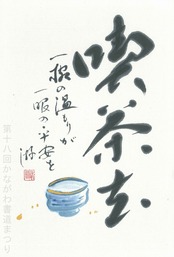 喫茶去
一椀の温もりが
一暇の平安を
游
第十八回かながわ書道まつり